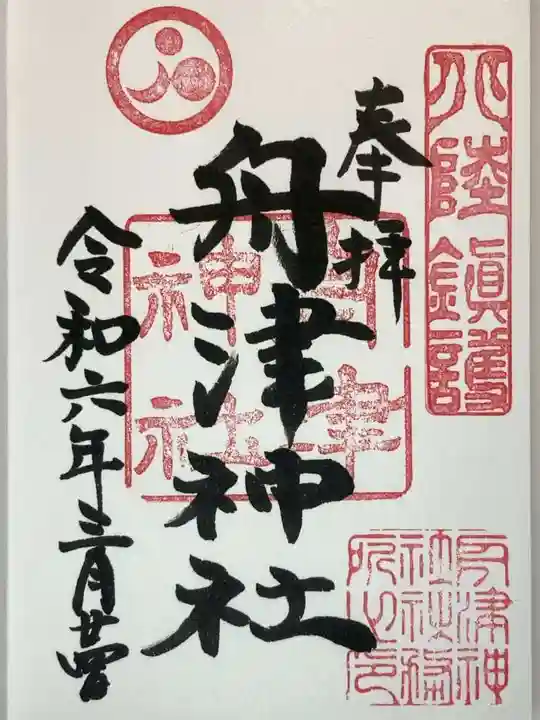 北陸鎮護
奉拝
舟津神社
舟津神社
令和六年三月廿四日
舟津神社社務所之印